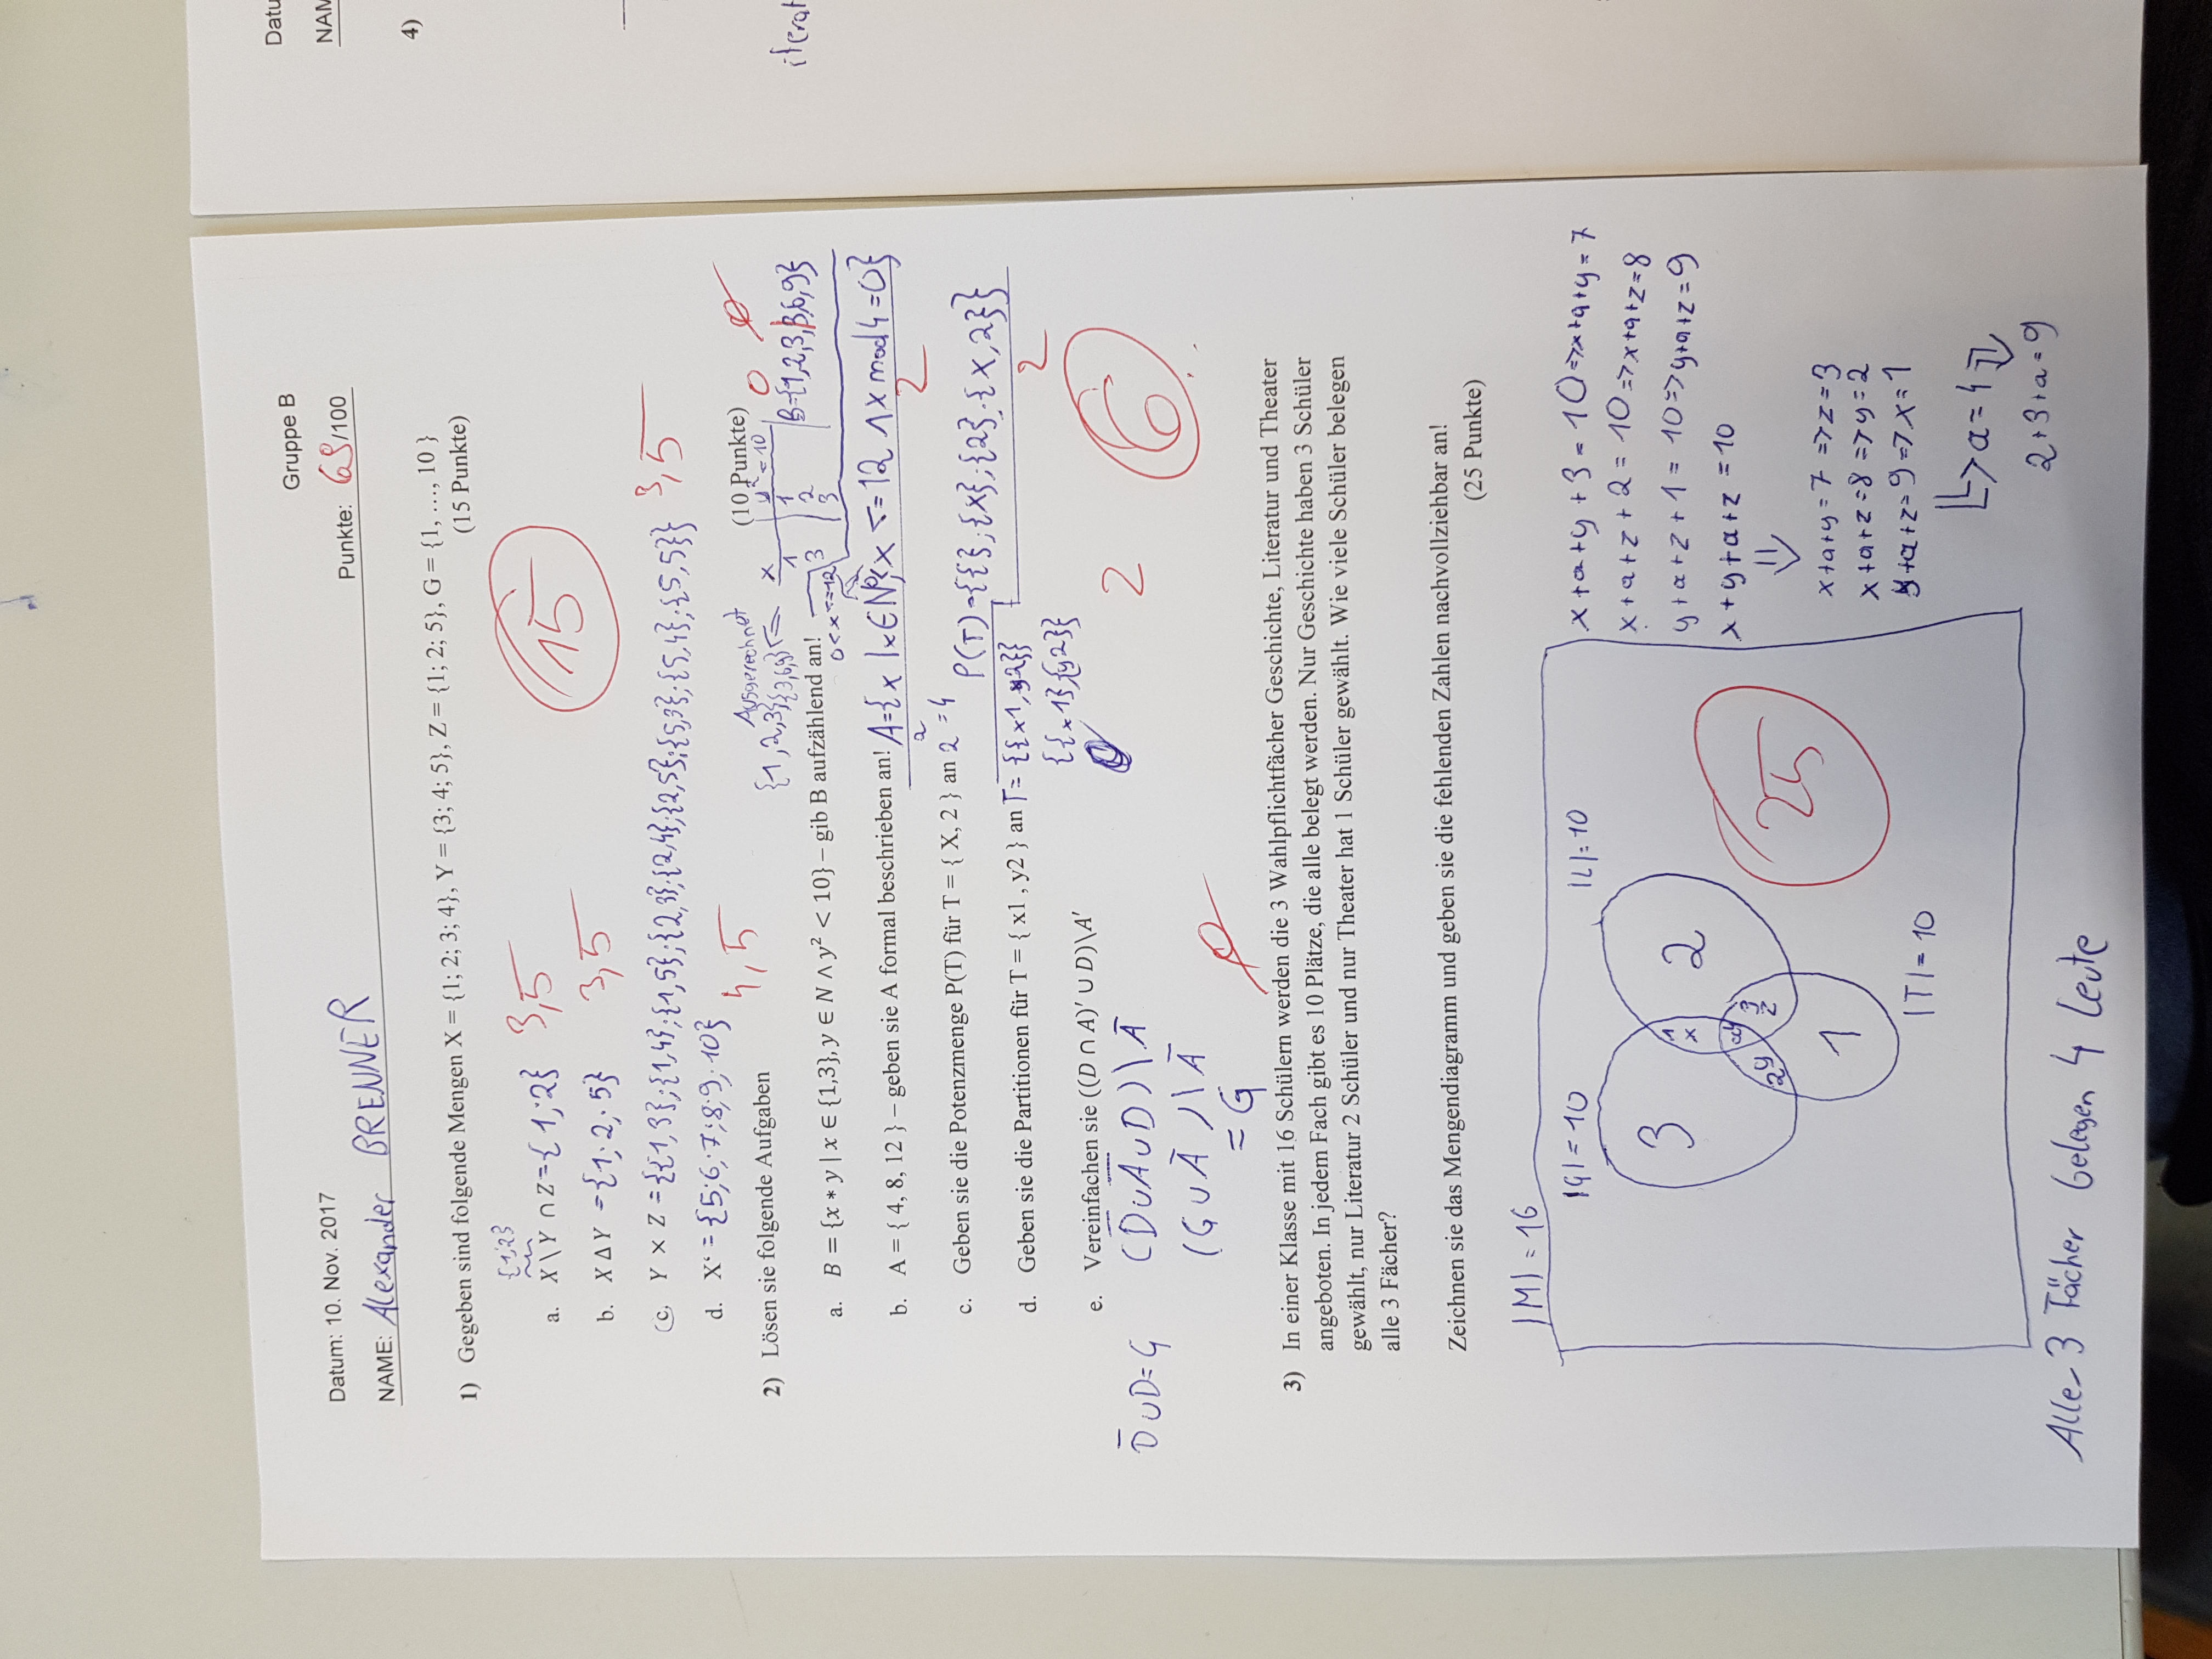 Gruppe B
Datum: 10. Nov. 2017
Punkte: 69/100
NAME: Alexander BRENNER
1) Gegeben sind folgende Mengen X = {1; 2; 3; 4}, Y = {3; 4; 5}, Z = {1; 2; 5}, G = {1, …, 10 }
(15 Punkte)
{1;2}
a. X \ Y ∩ Z = {1;2} 3,5
15
b. X Δ Y = {1; 2; 5} 3,5
c. Y × Z = {{1,3};{1,4};{1,5};{2,3};{2,4};{2,5};{5,3};{5,4};{5,5}} 3,5
d. X‘ = {5;6;7;8;9;10} 4,5
2) Lösen sie folgende Aufgaben
(10 Punkte)
Ausgerechnet
{1,2,3}{3,6,9} <=
x y² = 10
1 1
3 2
3
B={1,2,3,3,6,9}
0
a. B = {x ∗ y | x ∈ {1,3}, y ∈ N ∧ y² < 10} – gib B aufzählend an!
0 < x <= 12
b. A = { 4, 8, 12 } – geben sie A formal beschrieben an! A={x |x∈N x <= 12 ∧ x mod 4 = 0}
2
c. Geben sie die Potenzmenge P(T) für T = { X, 2 } an 2² = 4
P(T)={{};{x};{2};{x,2}}
2
d. Geben sie die Partitionen für T = { x1 , y2 } an T= {{x1, y2}}
{{x1},{y2}}
2
6
e. Vereinfachen sie ((D ∩ A)′ ∪ D)\A′
D̄ ∪ D = G
(D̄ ∪ Ā ∪ D) \ Ā
(G ∪ Ā ) \ Ā
= G
3) In einer Klasse mit 16 Schülern werden die 3 Wahlpflichtfächer Geschichte, Literatur und Theater
angeboten. In jedem Fach gibt es 10 Plätze, die alle belegt werden. Nur Geschichte haben 3 Schüler
gewählt, nur Literatur 2 Schüler und nur Theater hat 1 Schüler gewählt. Wie viele Schüler belegen
alle 3 Fächer?
Zeichnen sie das Mengendiagramm und geben sie die fehlenden Zahlen nachvollziehbar an!
(25 Punkte)
|M| = 16
|G| = 10
|L| = 10
3
1
x
2
a4
2y
3
z
1
|T| = 10
25
x + a + y + 3 = 10 => x+a+y = 7
x + a + z + 2 = 10 => x+a+z = 8
y + a + z + 1 = 10 => y+a+z = 9
x + y + a + z = 10
x+a+y = 7 => z = 3
x+a+z = 8 => y = 2
y+a+z = 9 => x = 1
a = 4
2 + 3 + a = 9
Alle 3 Fächer belegen 4 Leute
Datu
NAM
4)
iterat